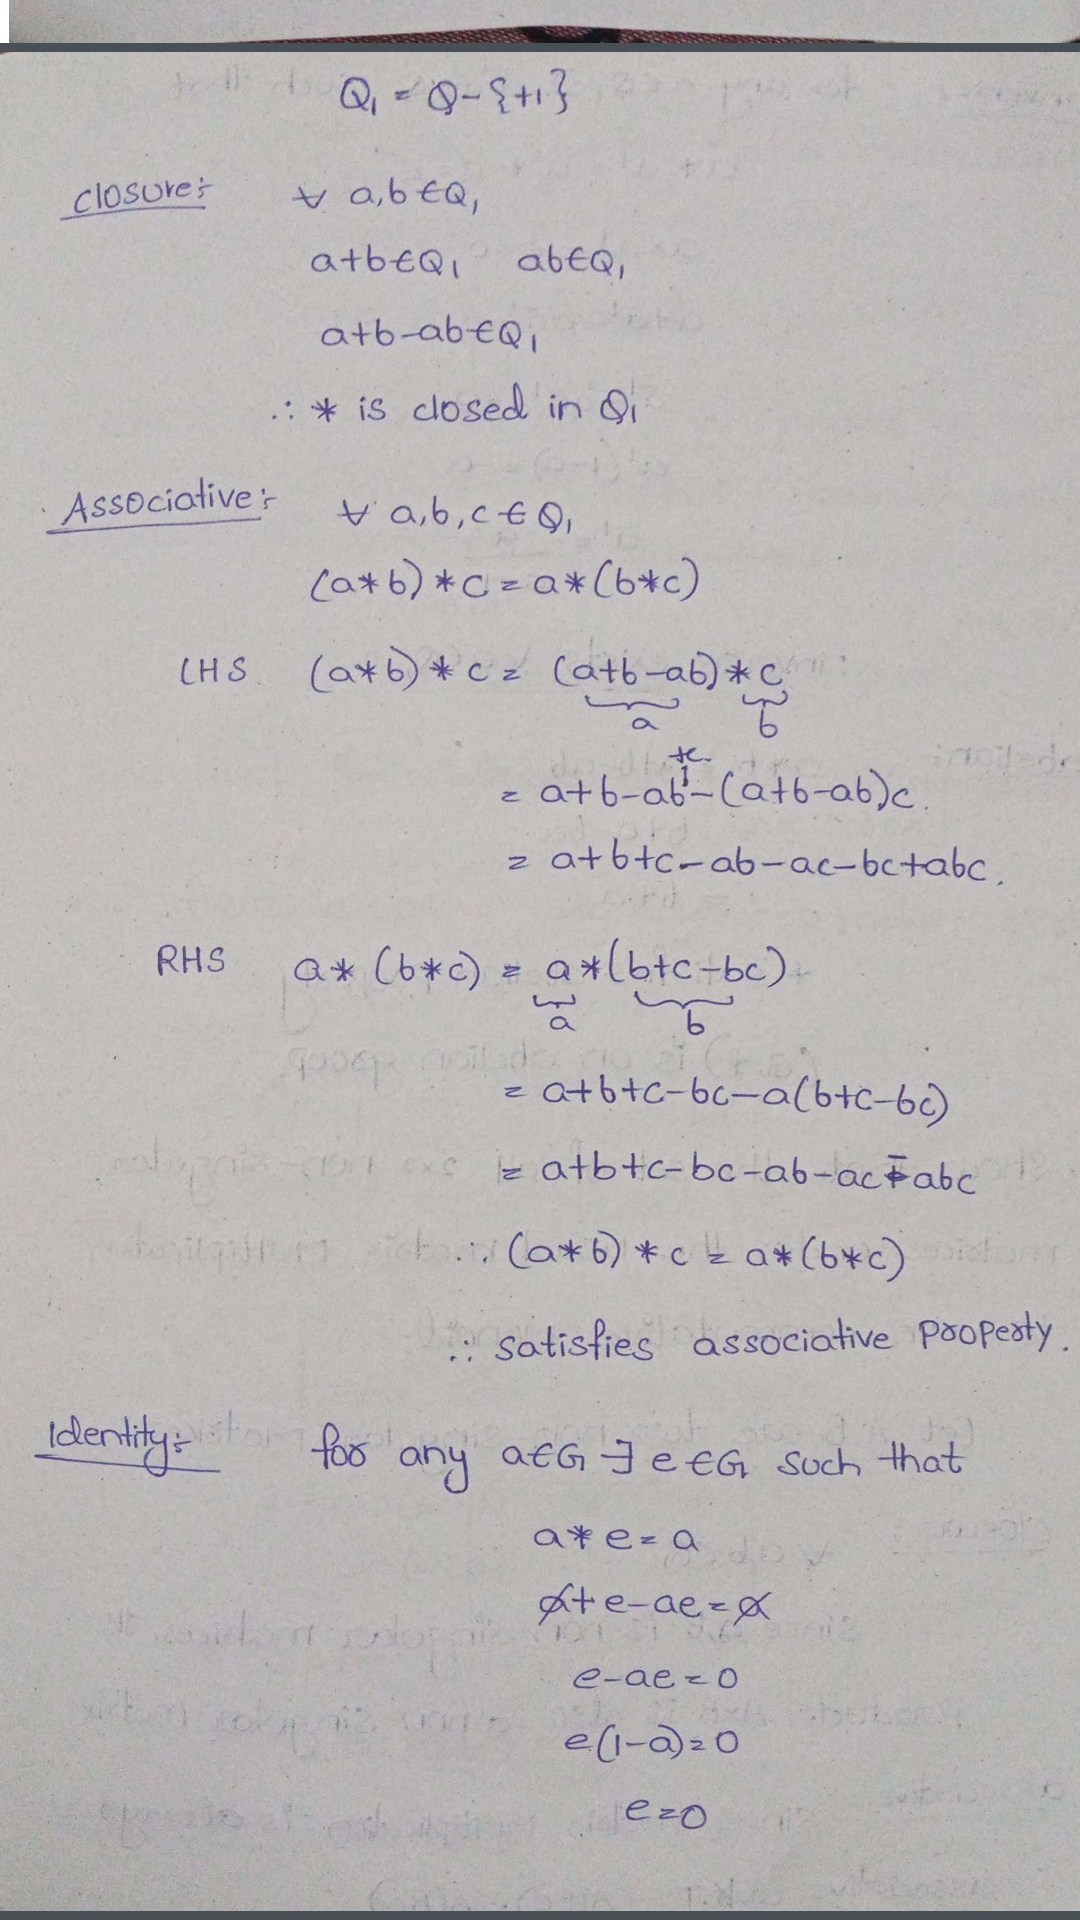 Q₁ = Q-{+1}
closure:- ∀ a,b ∈ Q₁
a+b ∈ Q₁ ab ∈ Q₁
a+b-ab ∈ Q₁
∴ * is closed in Q₁
Associative:- ∀ a,b,c ∈ Q₁
(a*b)*c = a*(b*c)
LHS (a*b)*c = (a+b-ab)*c
a b
+c
= a+b-ab-(a+b-ab)c.
= a+b+c-ab-ac-bc+abc.
RHS a*(b*c) = a*(b+c-bc)
a b
= a+b+c-bc-a(b+c-bc)
= a+b+c-bc-ab-ac+abc
∴ (a*b)*c = a*(b*c)
∴ satisfies associative property.
Identity:- for any a∈G ∃ e∈G such that
a*e=a
a+e-ae=a
e-ae=0
e(1-a)=0
e=0